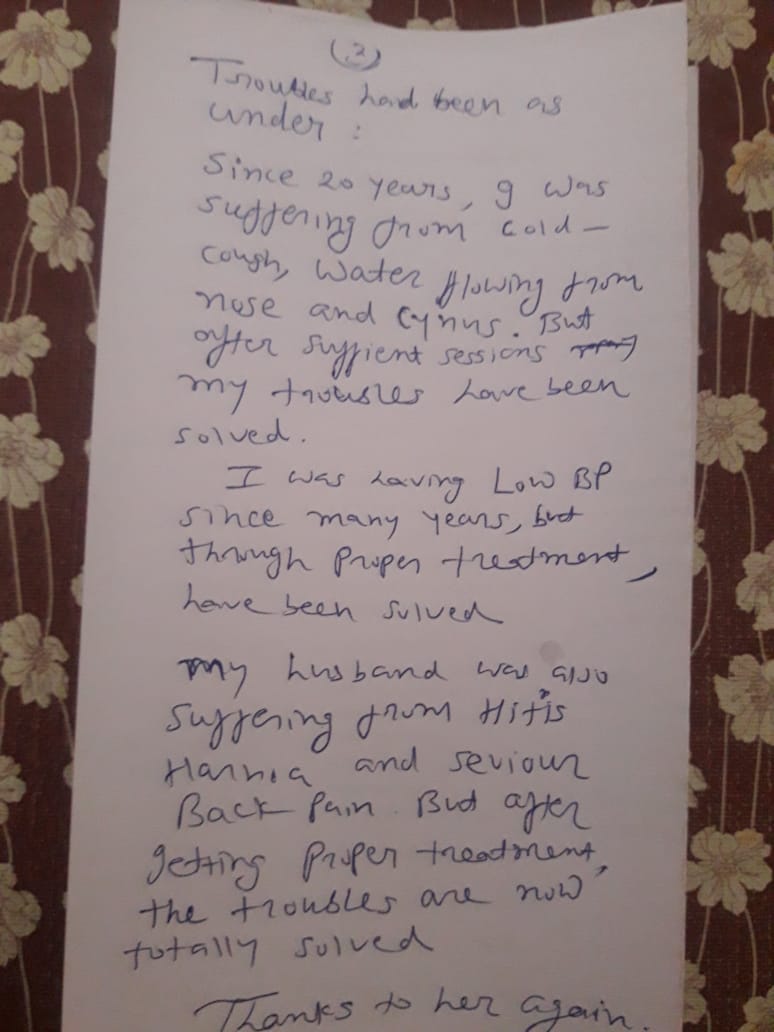 (2)
Troubles had been as
under :
Since 20 years, I was
suffering from cold-
cough, Water flowing from
nose and Cynus. But
after suffient sessions
my troubles have been
solved.
I was having Low BP
since many years, but
through proper treatment,
have been solved
my husband was also
suffering from Hitis
Harnia and seviour
Back Pain. But after
getting proper treatment,
the troubles are now
totally solved
Thanks to her again.